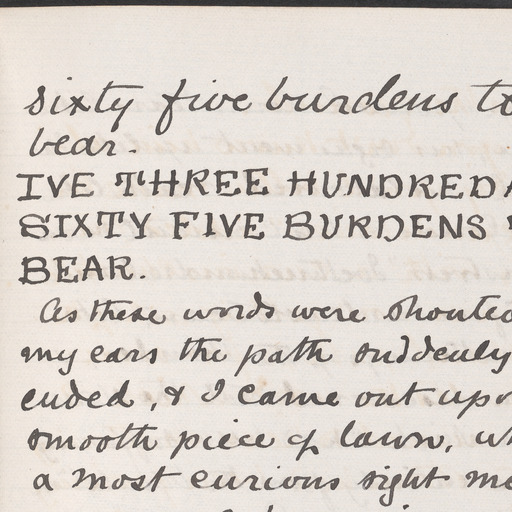 sixty five burdens to
bear.
IVE THREE HUNDRED
SIXTY FIVE BURDENS
BEAR.
As these words were shouted
my ears the path suddenly
ended, & I came out upo
smooth piece of lawn, wh
a most curious sight me